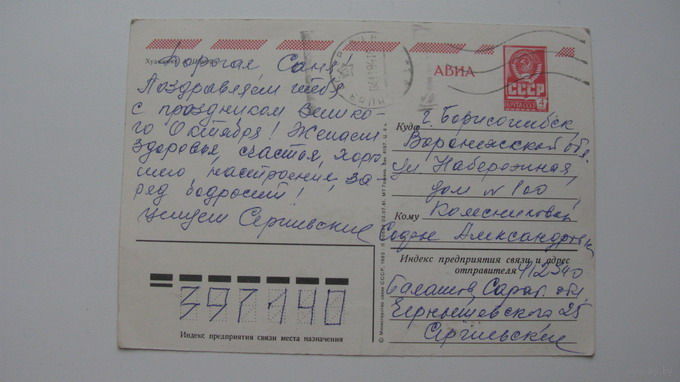 Художник
Дорогая Саня!
Поздравляем тебя
с праздником Велико-
го Октября! Желаем
здоровья, счастья, хоро-
шего настроения, за-
ряд бодрости!
Целуем Сергиевские
АВИА
СССР
ПОЧТА
Куда г. Борисоглебск,
Воронежской обл.
ул Набережная,
дом № 100
Кому Колесниковой
Софье Александровне
Индекс предприятия связи и адрес
отправителя 412340
Балашов Сарат. обл
Чернышевского 25
Сергиевские
397140
Индекс предприятия связи места назначения
© Министерство связи СССР, 1980